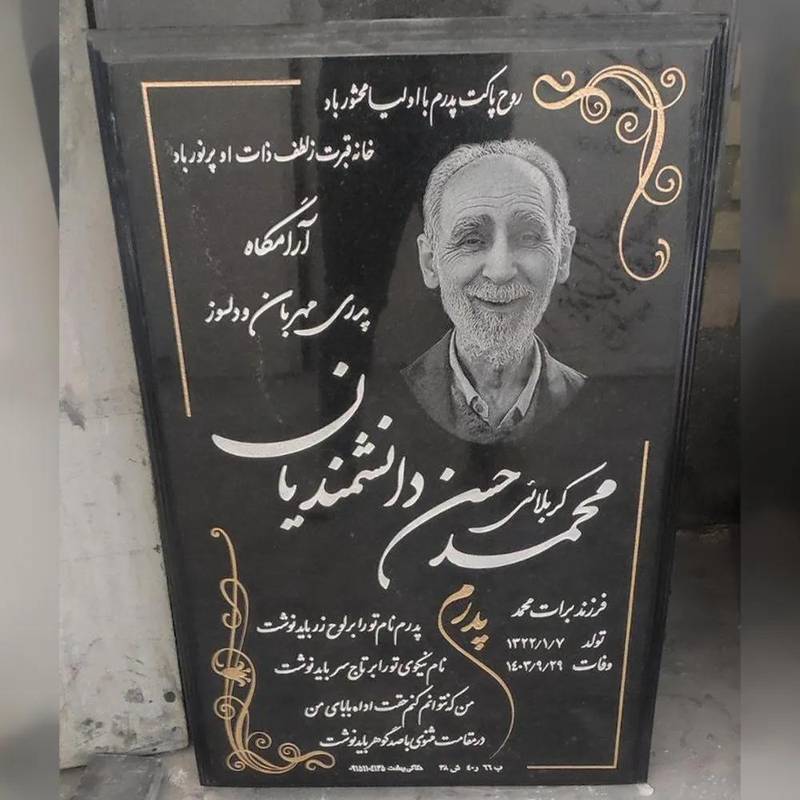 روح پاکت پدرم با اولیا محشور باد
خانه قبرت ز لطف ذات او پرنور باد
آرامگاه
پدری مهربان و دلسوز
کربلائی
محمد حسن دانشمندیان
فرزند برات محمد
تولد ۱۳۲۲/۱/۷
وفات ۱۴۰۳/۹/۲۹
پدرم
پدرم نام تو را بر لوح زر باید نوشت
نام نیکوی تو را بر تاج سر باید نوشت
من که نتوانم کنم حقت ادا بابای من
در مقامت مثنوی با صد گوهر باید نوشت
ب ۶۶ ر ۴۰ ش ۳۸